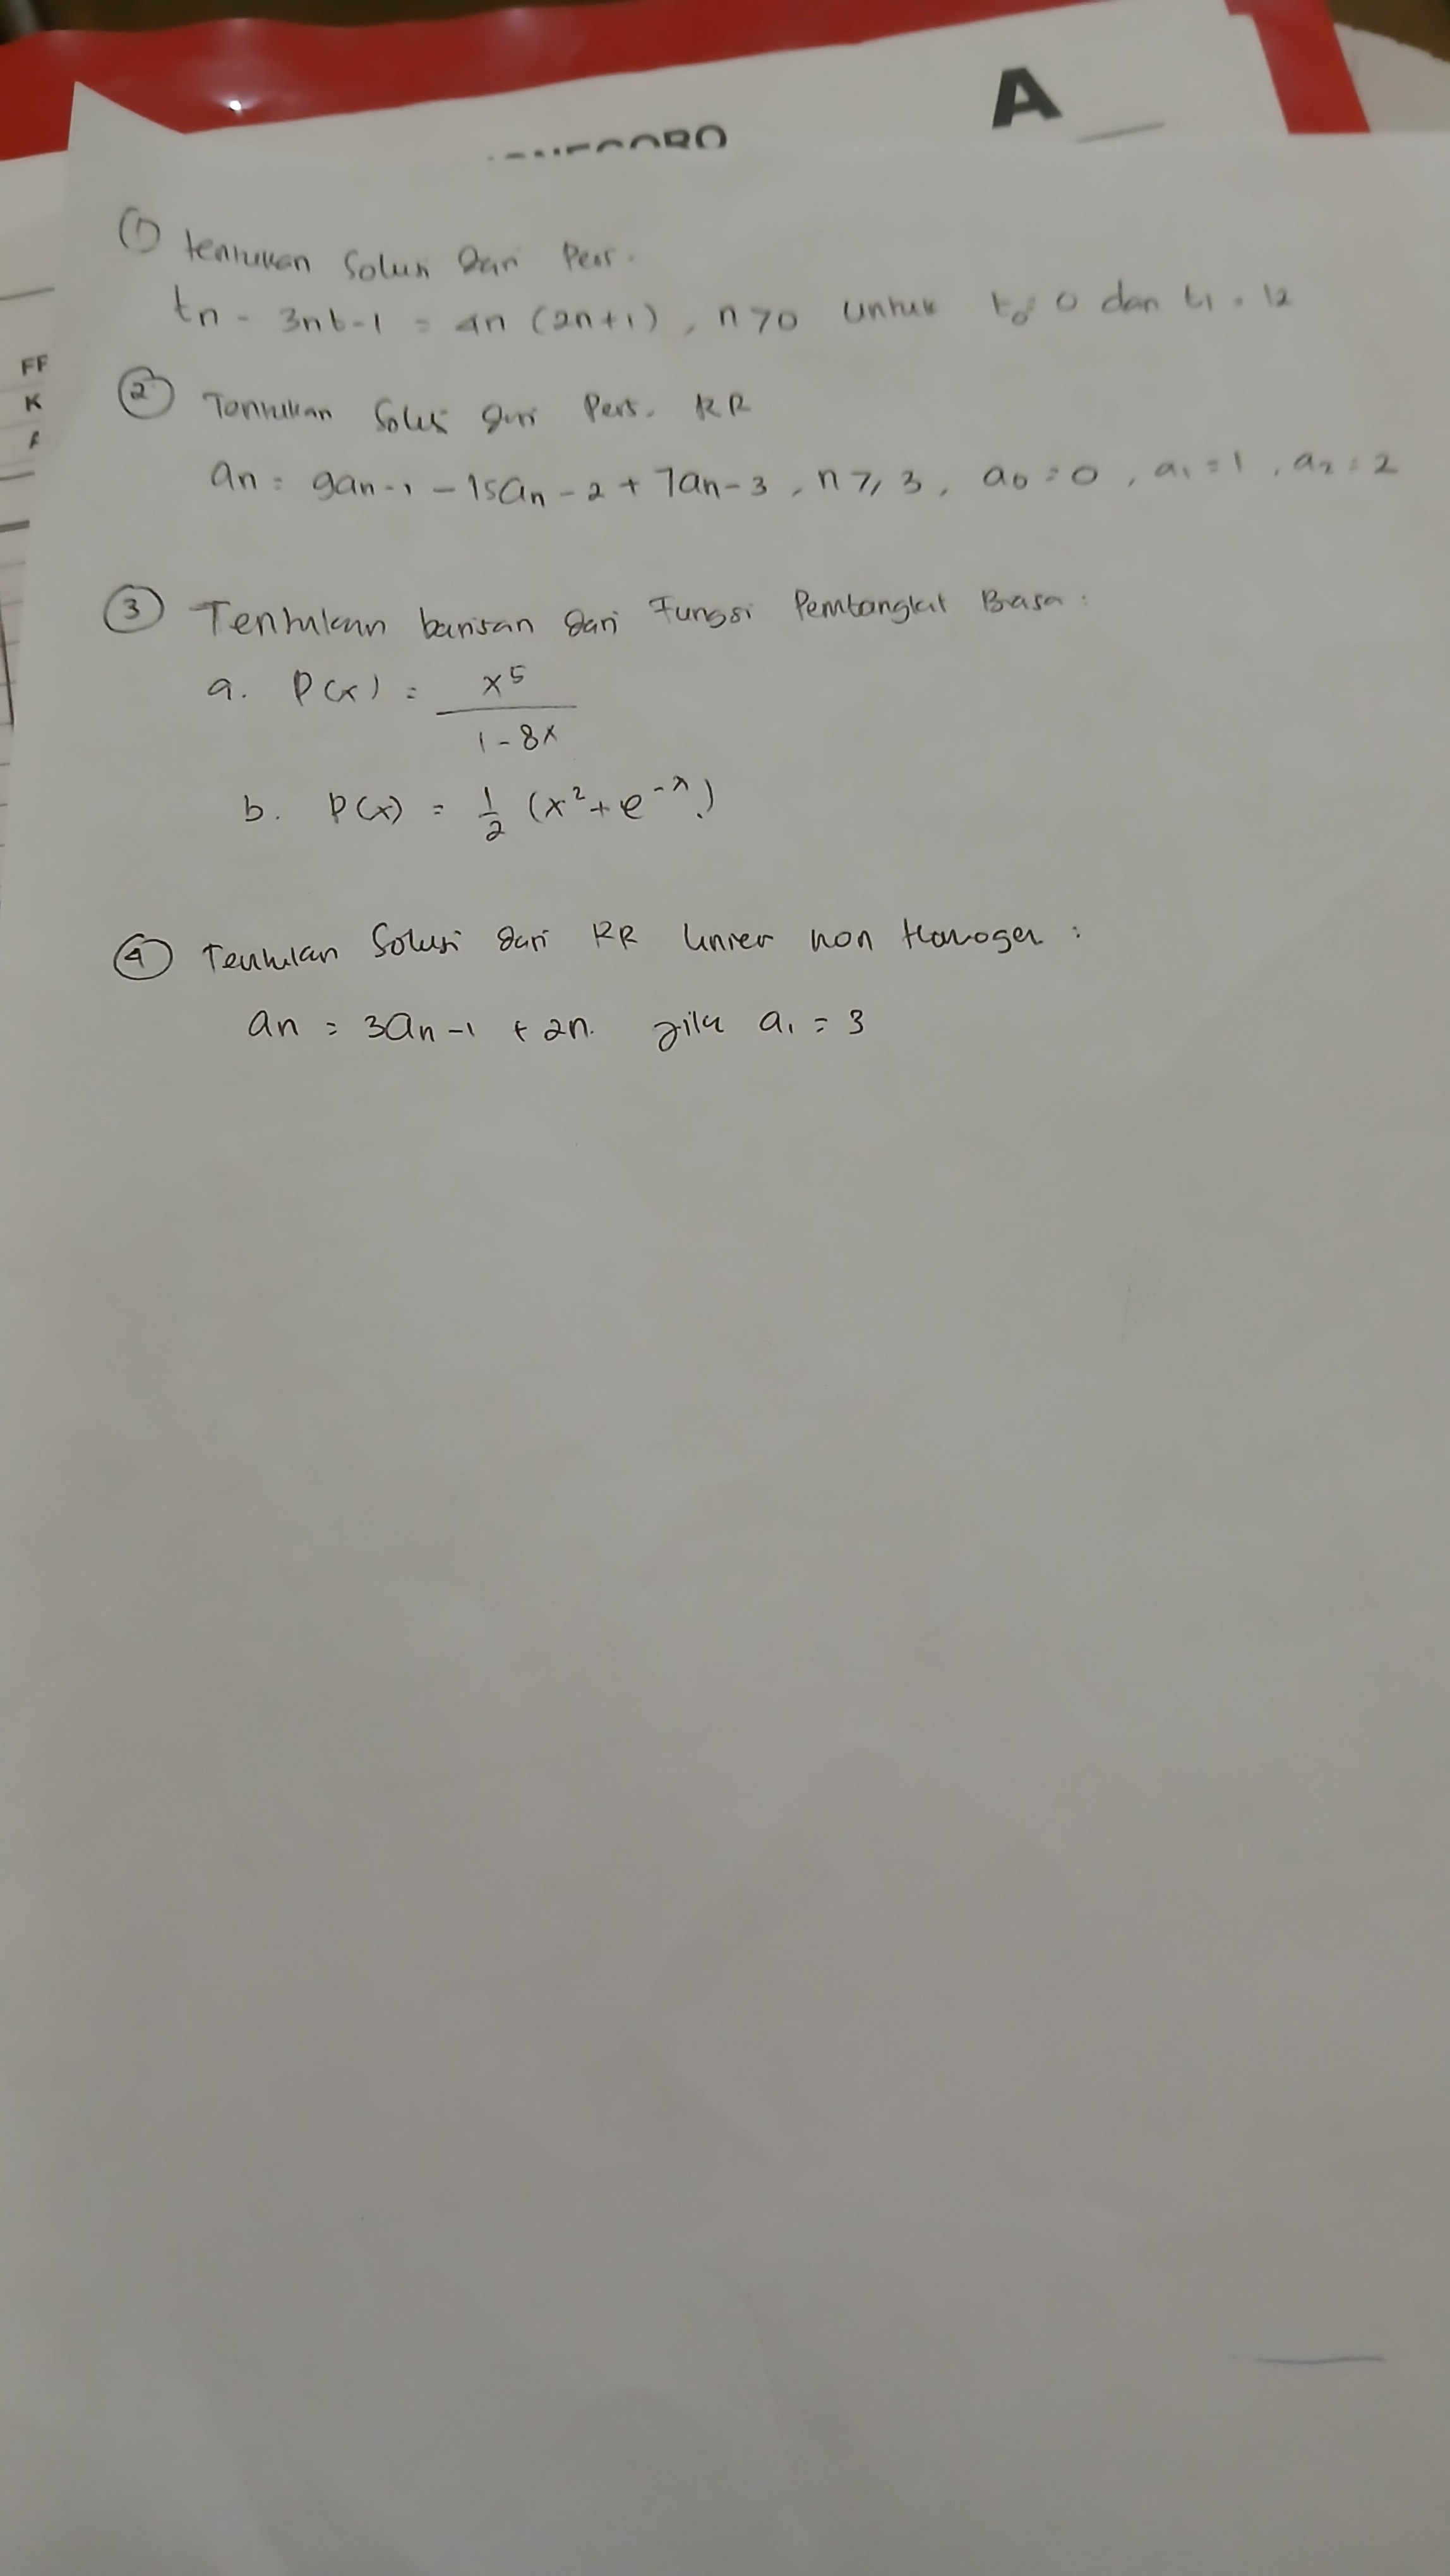 A
FF
K
① tentukan Solusi dari Pers.
tn - 3nt-1 = 4n (2n+1), n>0 untuk t₀=0 dan t₁=12
② Tentukan Solusi dari Pers. RR
an = 9an-1 - 15an-2 + 7an-3, n≥3, a₀=0, a₁=1, a₂=2
③ Tentukan barisan dari Fungsi Pembangkit Biasa:
a. P(x) = x⁵ / 1-8x
b. P(x) = 1/2 (x²+e⁻ˣ)
④ Tentukan Solusi dari RR linier non Homogen :
an = 3an-1 + 2n. jika a₁ = 3